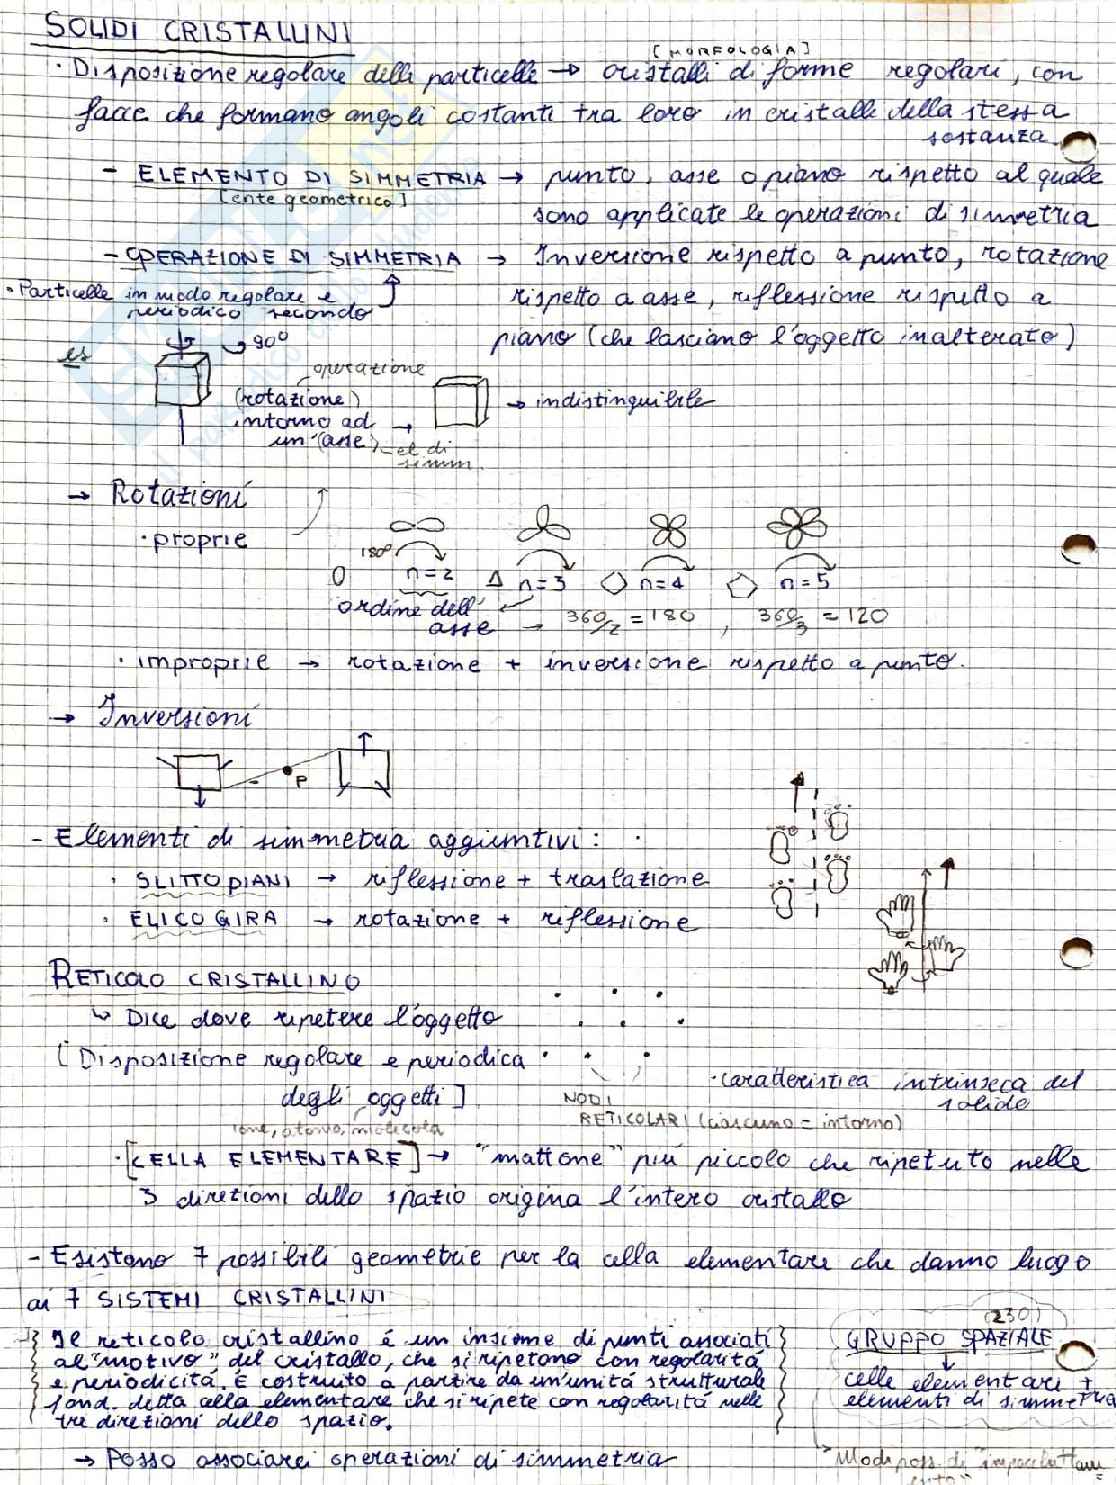 SOLIDI CRISTALLINI
[MORFOLOGIA]
· Disposizione regolare delle particelle → cristalli di forme regolari, con
facce che formano angoli costanti tra loro in cristalli della stessa
sostanza.
- ELEMENTO DI SIMMETRIA → punto, asse o piano rispetto al quale
[ente geometrico]
sono applicate le operazioni di simmetria
- OPERAZIONE DI SIMMETRIA → Inversione rispetto a punto, rotazione
· Particelle in modo regolare e
periodico secondo
rispetto a asse, riflessione rispetto a
piano (che lasciano l'oggetto inalterato)
es
90°
operazione
(rotazione)
intorno ad →
un (asse)
→ indistinguibile
el di
simm.
→ Rotazioni
· proprie
180°
n=2 n=3 n=4 n=5
ordine dell'
asse → 360/2 = 180 , 360/3 = 120
· improprie → rotazione + inversione rispetto a punto.
→ Inversioni
P
- Elementi di simmetria aggiuntivi:
· SLITTOPIANI → riflessione + traslazione
· ELICOGIRA → rotazione + riflessione
RETICOLO CRISTALLINO
↳ Dice dove ripetere l'oggetto
[Disposizione regolare e periodica
degli oggetti]
ione, atomo, molecola
NODI
RETICOLARI (ciascuno = intorno)
· caratteristica intrinseca del
solido
· [CELLA ELEMENTARE] → "mattone" più piccolo che ripetuto nelle
3 direzioni dello spazio origina l'intero cristallo
- Esistono 7 possibili geometrie per la cella elementare che danno luogo
ai 7 SISTEMI CRISTALLINI
Il reticolo cristallino é un insieme di punti associati
al "motivo" del cristallo, che si ripetono con regolarità
e periodicità. È costruito a partire da un'unità strutturale
fond. detta cella elementare che si ripete con regolarità nelle
tre direzioni dello spazio.
(230)
GRUPPO SPAZIALE
celle elementari +
elementi di simmetria
→ Posso associarci operazioni di simmetria
Modi poss. di